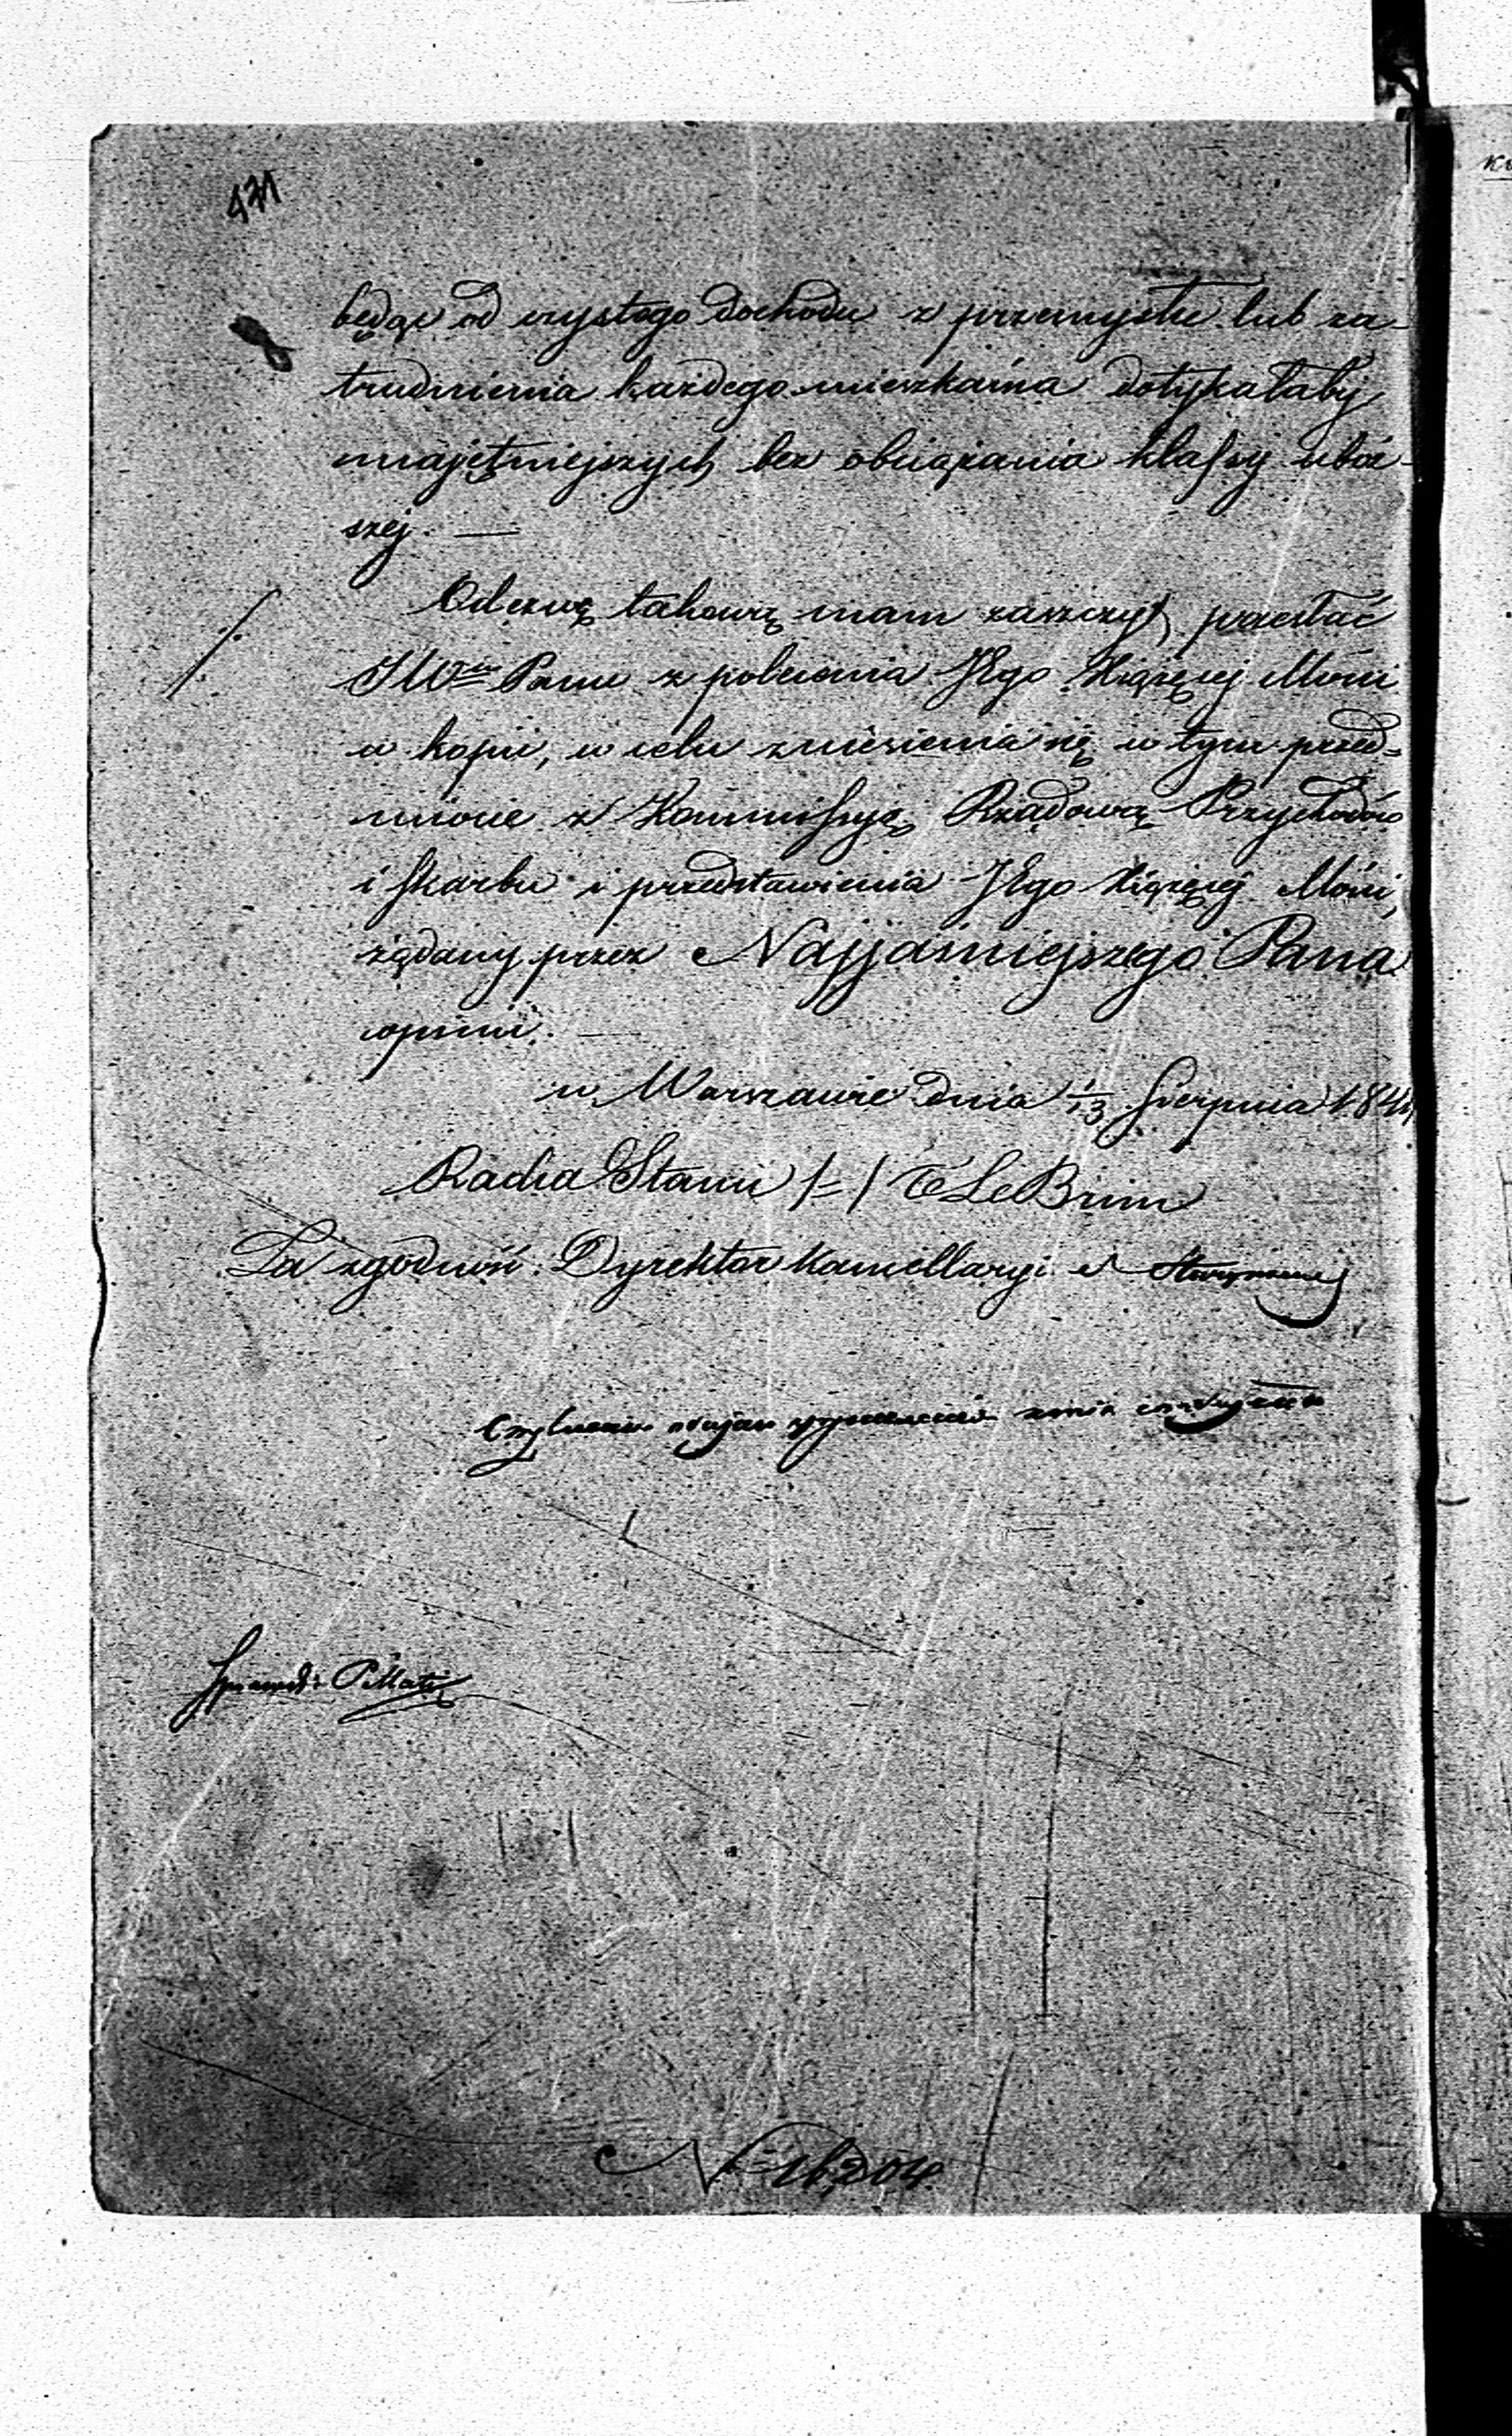 431
będąc od czystego dochodu z przemysłu lub za-
trudnienia każdego mieszkańca dotykałaby
majętniejszych bez obciążania klassy uboż-
szej. —
Odezwę takową mam zaszczyt przesłać
JWmu Panu z polecenia JEgo Xiążęcej Mości
w kopii, w celu zniesienia się w tym przed=
miocie z Kommissyą Rządową Przychodów
i Skarbu i przedstawienia JEgo Xiążęcej Mości,
żądanej przez Najjaśniejszego Pana
opinii. —
w Warszawie dnia 1/13 Sierpnia 184
Radca Stanu /=/ T Le Brun
Za zgodność Dyrektor Kancellaryi
N 16,204